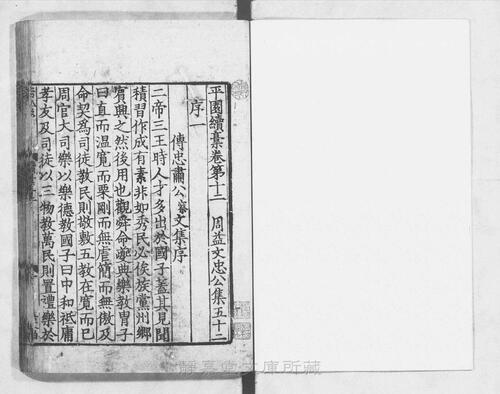 平園續藁卷第十二　周益文忠公集五十二
序一
傅忠肅公察文集序
二帝三王時人才多出於國子蓋其見聞
積習作成有素非如秀民必俟族黨州鄉
賔興之然後用也觀舜命夔典樂教胄子
曰直而温寛而栗剛而無虐簡而無傲及
命契爲司徒教民則敬敷五教在寛而已
周官大司樂以樂德教國子曰中和祗庸
孝友及司徒以三物教萬民則置禮樂於
靜嘉堂文庫所藏